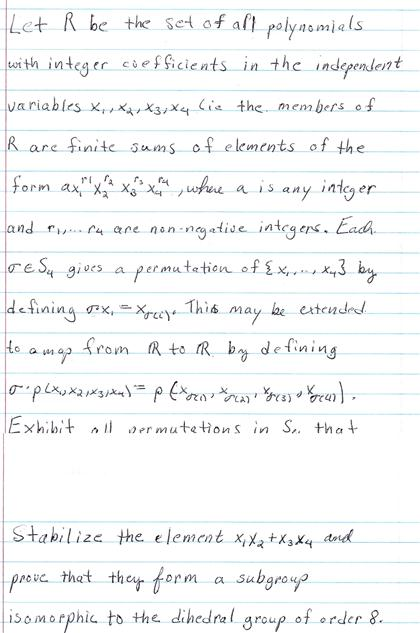 Let R be the set of all polynomials
with integer coefficients in the independent
variables x₁, x₂, x₃, x₄ (ie the members of
R are finite sums of elements of the
form ax₁^r₁ x₂^r₂ x₃^r₃ x₄^r₄, where a is any integer
and r₁,... r₄ are non-negative integers. Each
σ∈S₄ gives a permutation of {x₁,..., x₄} by
defining σ·xᵢ = x_σ(i). This may be extended
to a map from R to R by defining
σ·p(x₁,x₂,x₃,x₄) = p(x_σ(1), x_σ(2), x_σ(3), x_σ(4)).
Exhibit all permutations in S₄ that
Stabilize the element x₁x₂+x₃x₄ and
prove that they form a subgroup
isomorphic to the dihedral group of order 8.